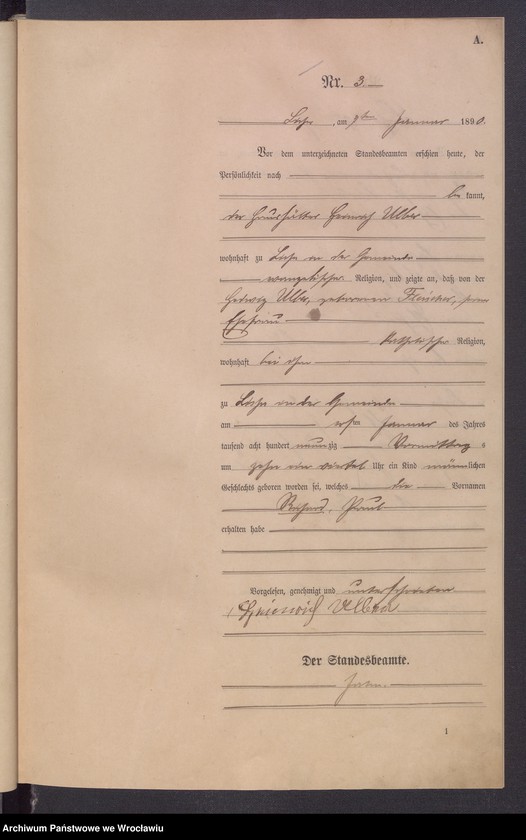 A.
Nr. 3.
, am 9ten Januar 1890.
Vor dem unterzeichneten Standesbeamten erschien heute, der
Persönlichkeit nach
be kannt,
der Heinrich Ulber
wohnhaft zu an der Gemeinde
evangelischer Religion, und zeigte an, daß von der
Hedwig Ulber, geborenen
Ehefrau
katholischer Religion,
wohnhaft bei ihm
zu an der Gemeinde
am ersten Januar des Jahres
tausend acht hundert neunzig Vormittag s
um zehn ein viertel Uhr ein Kind männlichen
Geschlechts geboren worden sei, welches die Vornamen
Paul
erhalten habe
Vorgelesen, genehmigt und unterschrieben
Heinrich Ulber
Der Standesbeamte.
1
Archiwum Państwowe we Wrocławiu